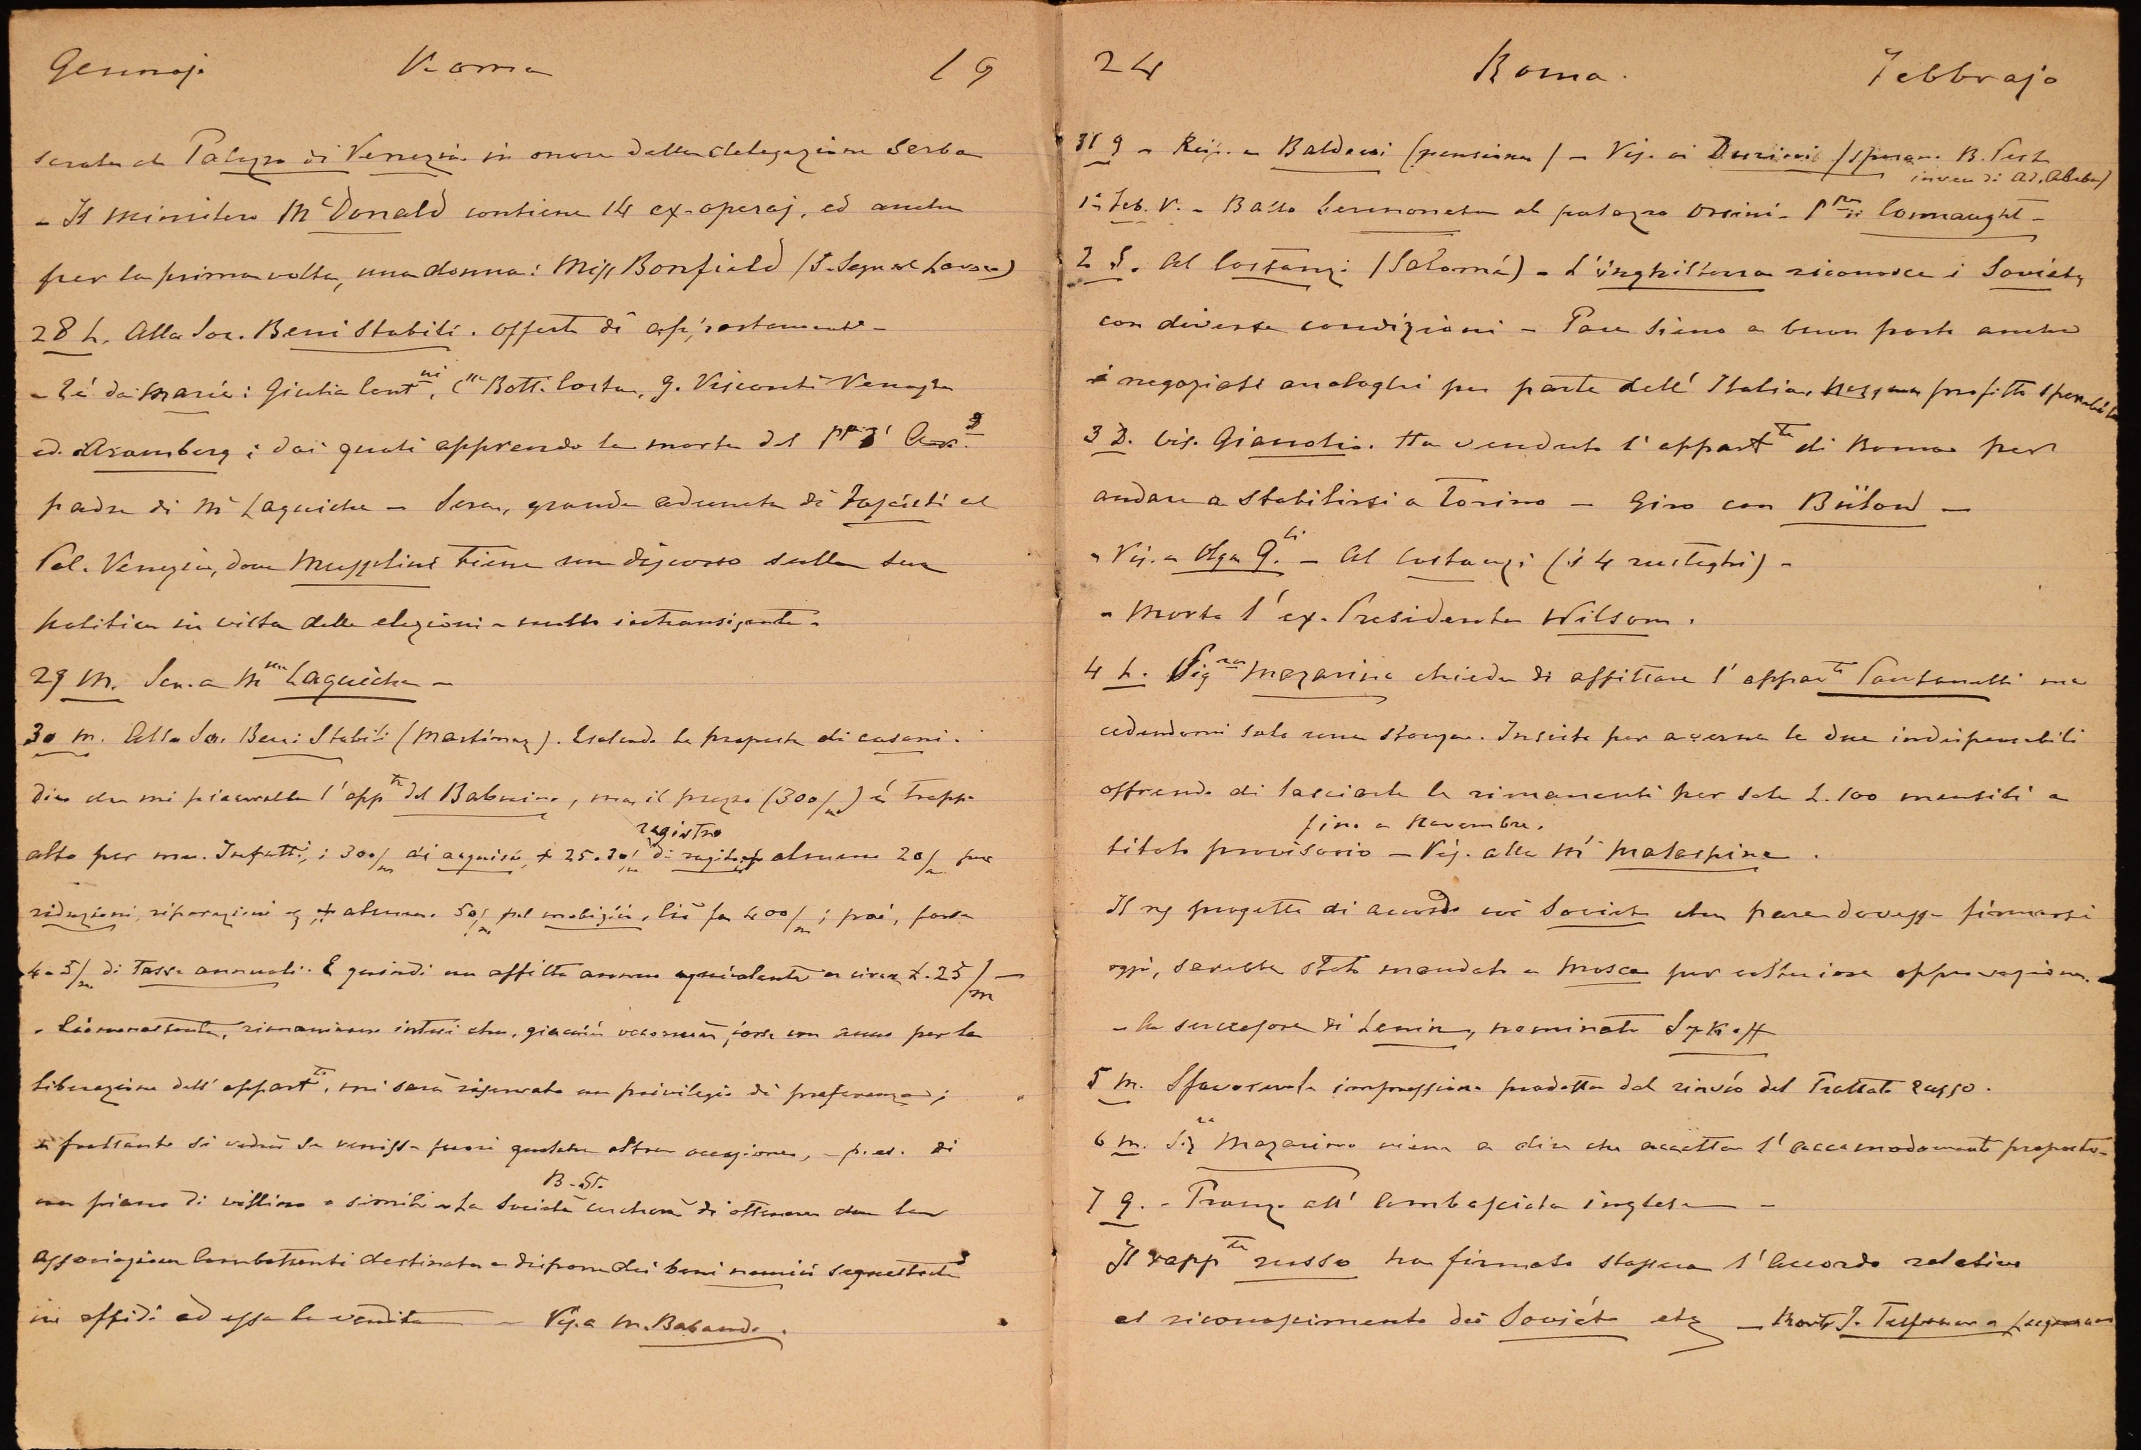 Gennajo Roma 19
serata al Palazzo di Venezia in onore della delegazione Serba
- Il ministero McDonald contiene 14 ex-operaj, ed anche
per la prima volta, una donna: Miss Bonfield (S. Segret Lavoro)
28 L. Alla Soc. Beni Stabili. Offerte di app. restaurante -
- Té da Maria: Giulia , Css Bott. Costa, G. Visconti Venosta
ed Aramberg; dai quali apprendo la morte del
padre di Me Laguiche - Sera, grande adunata di Fascisti al
Pal. Venezia, dove Mussolini tiene un discorso sulla sua
politica in vista delle elezioni - molto intransigente -
29 M. Ser. a Mme Laguiche -
30 M. Alla Soc. Beni Stabili (Martinez). Esclude la proposta di
dico che mi piacerebbe l'appto del Babuino, ma il prezzo (300/m) è troppo
alto per me. Infatti, i 300/m di acquisto, + 25.30/m di registro + almeno 20/m per
registro
riduzioni, riparazioni etz + almeno 50/m pel mobiglio, ciò fa 400/m; poi, forse
4-5/m di tasse annuali. E quindi un affitto annuo equivalente a circa L. 25/m -
- Ciò nonostante, rimaniamo intesi che, giacché occorrerà forse un anno per la
liberazione dell'appartto, mi sarà riservato un privilegio di preferenza;
e frattanto si vedrà se venisse fuori qualche altra occasione, - p. es. di
un piano di villino o simili - La Società B. St. cercherà di ottenere che la
Associazione Combattenti destinata a disporre dei beni nemici sequestrati
ne affidi ad essa la vendita - Vis. a M. Babando.
24 Roma. Febbrajo
31 G - Risp. a Baldassi (pensione) - Vis. ai Durini (sperav. B. Pest
invece di Ad. Abeba)
1° Feb. V. - Ballo Sermoneta al palazzo Orsini - Pssa Connaught -
2 S. Al Costanzi (Salomé) - L'inghilterra riconosce i Soviets,
con diverse condizioni - Pare sieno a buon porto anche
i negoziati analoghi per parte dell'Italia, nessun profitto sperabile
3 D. Vis. Gianotti. Ha venduto l'appartto di Roma per
andare a stabilirsi a Torino - Giro con Bülow -
- Vis. a Olga G.li - Al Costanzi (i 4 rusteghi) -
- Morto l'ex-Presidente Wilson.
4 L. Sigra Mazarino chiede di affittare l'appartto Santanelli ma
cedendomi solo una stanza. Insisto per averne le due indispensabili
offrendo di lasciarle le rimanenti per sole L. 100 mensili a
fino a Novembre.
titolo provvisorio - Vis. alla Me Malaspina.
Il progetto di accordo coi Soviets che pareva dovesse firmarsi
oggi, sarebbe stato mandato a Mosca per ulteriore approvazione.
- A successore di Lenin, nominato Rykoff
5 M. Sfavorevole impressione prodotta dal rinvio del Trattato russo.
6 M. Sigra Mazarino viene a dire che accetta l'accomodamento proposto -
7 G. - Pranzo all'Ambasciata inglese -
Il rappte russo ha firmato stassera l'accordo relativo
al riconoscimento dei Soviets etz - Morto T.